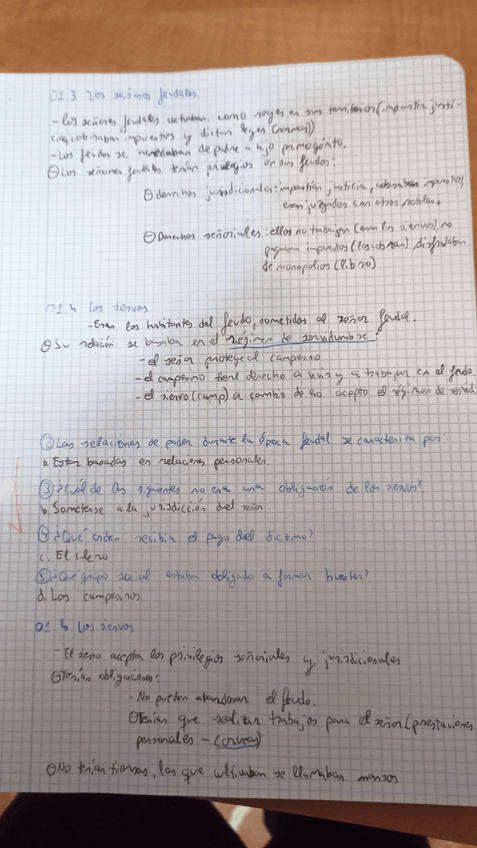 01.3 Los señores feudales
- Los señores feudales actuaban como reyes en sus territorios (impartía justi-
cia, cobraban impuestos y dictan leyes (normas))
- Los feudos se heredaban de padre a hijo primogénito.
⊖ Los señores feudales tenían privilegios en sus feudos:
⊖ derechos jurisdicionales: impartían justicia, cobraban impuestos,
eran juzgados con otros nobles.
⊖ Derechos señoriales: ellos no trabajan (eran los siervos), no
pagaban impuestos (los cobran), disfrutaban
de monopolios (libro)
01.4 Los siervos
- Eran los habitantes del feudo, sometidos al señor feudal.
⊖ Su relación se basaba en el régimen de servidumbre:
- el señor protege al campesino
- el campesino tiene derecho a vivir y a trabajar en el feudo
- el siervo (camp) a cambio de eso acepta el régimen de servid.
① Las relaciones de poder durante la época feudal se caracteriza por:
a. Estar basadas en relaciones personales
③ ¿Cuál de los siguentes no era una obligación de los siervos?
b. Someterse a la jurisdicción del señor.
④ ¿Qué orden recibía el pago del diezmo?
c. El clero
⑤ ¿Qué grupo social estaba obligado a formar huestes?
d. Los campesinos
01.4 Los siervos
- El siervo acepta los privilegios señoriales y jurisdicionales
⊖ Tenían obligaciones:
- No pueden abandonar el feudo.
⊖ Tenían que realizar trabajos para el señor (prestaciones
personales - (corveas)
⊖ No tenían tierras, las que cultivaban se llamaban mansos